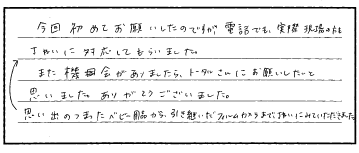 今回初めてお願いしたのですが電話でも、実際現場の方も
ていねいに対応してもらいました。
また機会がありましたら、トータルさんにお願いしたいと
思いました。ありがとうございました。
思い出のつまったベビー用品から、引き継いだフィルムカメラまで扱いにみていただきました